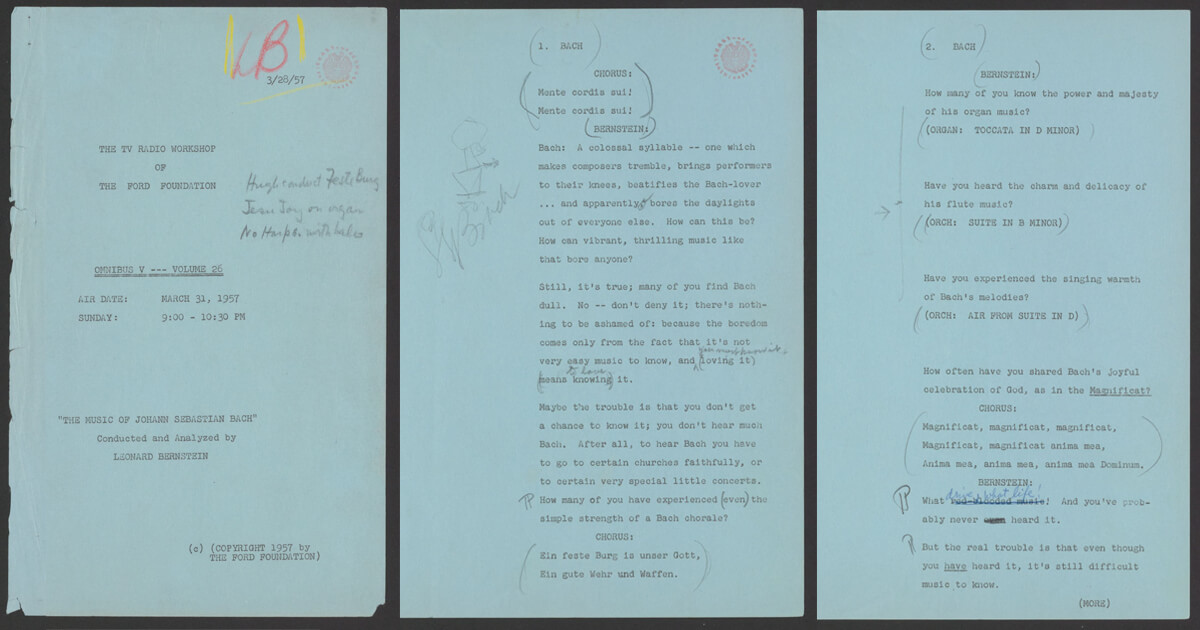 LB
3/28/57
THE TV RADIO WORKSHOP
OF
THE FORD FOUNDATION
Hugh conduct Feste Burg
Jean Joy on organ
No Harps with halos
OMNIBUS V --- VOLUME 26
AIR DATE: MARCH 31, 1957
SUNDAY: 9:00 - 10:30 PM
"THE MUSIC OF JOHANN SEBASTIAN BACH"
Conducted and Analyzed by
LEONARD BERNSTEIN
(c) (COPYRIGHT 1957 by
THE FORD FOUNDATION)
1. BACH
CHORUS:
Mente cordis sui!
Mente cordis sui!
BERNSTEIN:
Bach: A colossal syllable -- one which
makes composers tremble, brings performers
to their knees, beatifies the Bach-lover
... and apparently, bores the daylights
out of everyone else. How can this be?
How can vibrant, thrilling music like
that bore anyone?
Still, it's true; many of you find Bach
dull. No -- don't deny it; there's noth-
ing to be ashamed of: because the boredom
comes only from the fact that it's not
you must know it
very easy music to know, and loving it
to love
means knowing it.
Maybe the trouble is that you don't get
a chance to know it; you don't hear much
Bach. After all, to hear Bach you have
to go to certain churches faithfully, or
to certain very special little concerts.
How many of you have experienced (even) the
simple strength of a Bach chorale?
CHORUS:
Ein feste Burg is unser Gott,
Ein gute Wehr und Waffen.
Bach
2. BACH
BERNSTEIN:
How many of you know the power and majesty
of his organ music?
(ORGAN: TOCCATA IN D MINOR)
Have you heard the charm and delicacy of
his flute music?
(ORCH: SUITE IN B MINOR)
Have you experienced the singing warmth
of Bach's melodies?
(ORCH: AIR FROM SUITE IN D)
How often have you shared Bach's joyful
celebration of God, as in the Magnificat?
CHORUS:
Magnificat, magnificat, magnificat,
Magnificat, magnificat anima mea,
Anima mea, anima mea, anima mea Dominum.
BERNSTEIN:
drive, what life!
What red-blooded music! And you've prob-
ably never heard it.
But the real trouble is that even though
you have heard it, it's still difficult
music to know.
(MORE)